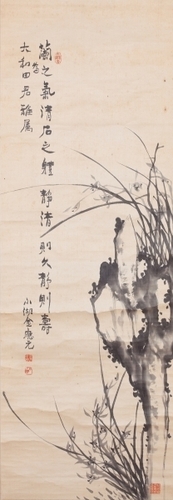 蘭之氣清石之體靜清則久靜則壽
為
大和田君雅屬
小湖金應元